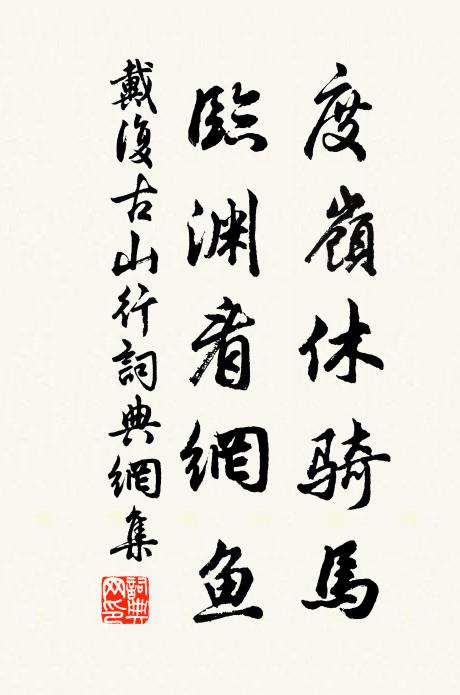 度嶺休騎馬
臨渊看網鱼
戴復古山行詞典網集
詞典網印